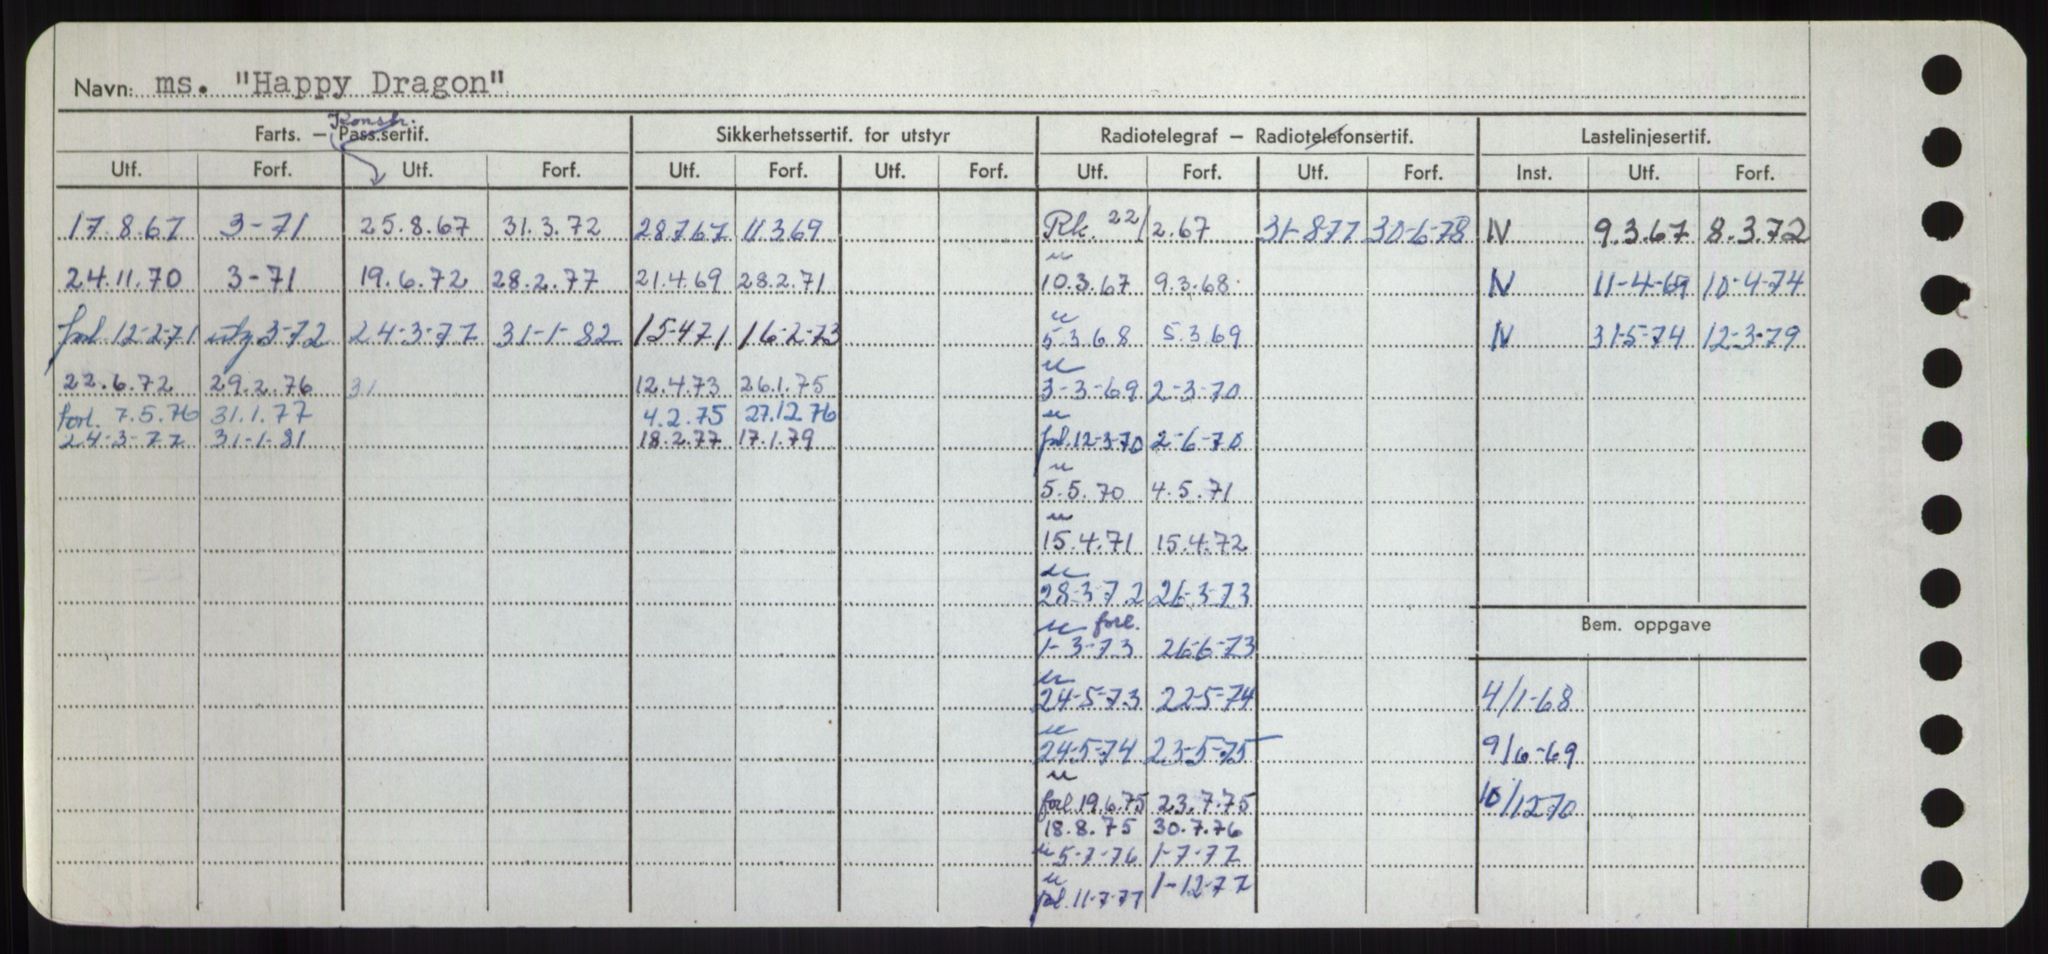 Navn: ms. "Happy Dragon"
Konstr.
Farts. – Pass.sertif. Sikkerhetssertif. for utstyr Radiotelegraf – Radiotelefonsertif. Lastelinjesertif.
Utf. Forf. Utf. Forf. Utf. Forf. Utf. Forf. Utf. Forf. Utf. Forf. Inst. Utf. Forf.
17.8.67 3-71 25.8.67 31.3.72 28.7.67 11.3.69 Rk. 22/2.67 31-8-77 30-6-78 N 9.3.67 8.3.72
"
24.11.70 3-71 19.6.72 28.2.77 21.4.69 28.2.71 10.3.67 9.3.68 N 11-4-69 10-4-74
"
forl. 12-2-71 3-72 24-3-77 31-1-82 15-4-71 16-2-73 5.3.68 5.3.69 N 31-5-74 12-3-79
"
22.6.72 29.2.76 31 12.4.73 26.1.75 3-3-69 2-3-70
forl. 7.5.76 31.1.77 4.2.75 27.12.76 "
24-3-77 31-1-81 18.2.77 17.1.79 forl. 12-3-70 2-6-70
"
5.5.70 4.5.71
"
15.4.71 15.4.72
"
28-3-72 26-3-73
" forl. Bem. oppgave
1-3-73 26-6-73
"
24-5-73 22-5-74 4/1-68
"
24-5-74 23-5-75 9/6-69
"
forl. 19.6.75 23.7.75 10/12-70
18.8.75 30.7.76
" 5-7-76 1-7-77
"
forl. 11-7-77 1-12-77